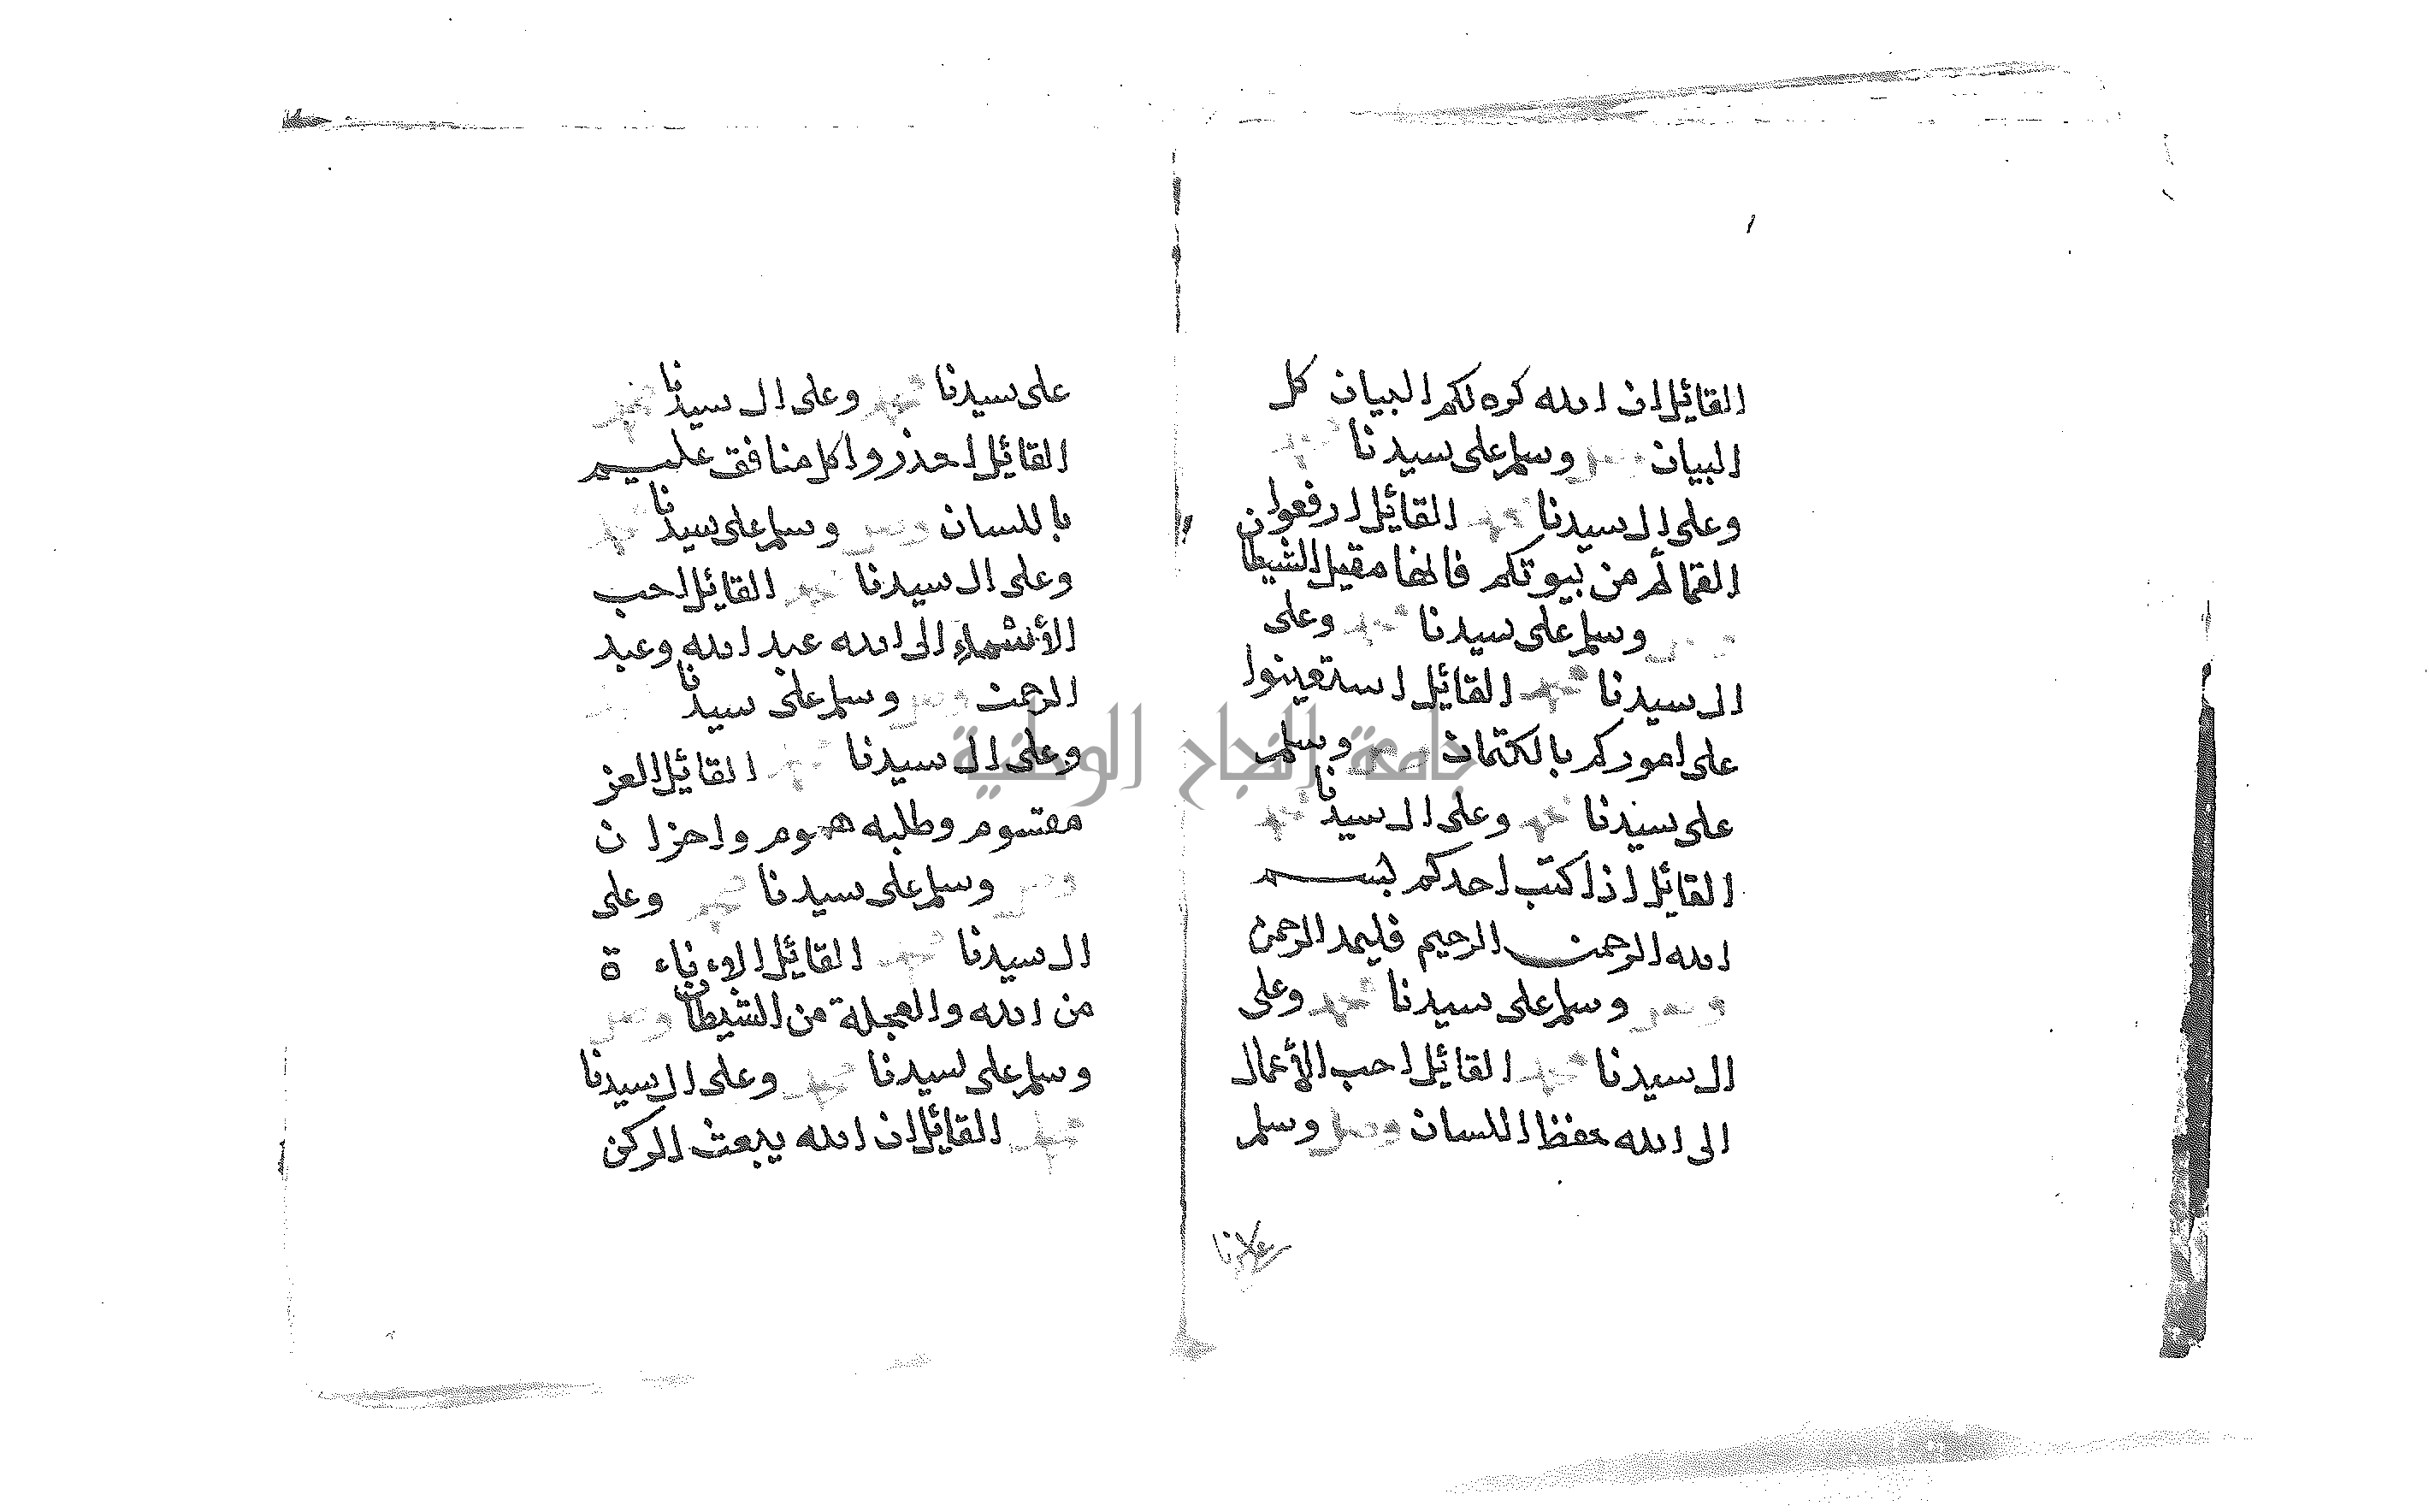 القائل ان الله كره لكم البيان كل
البيان وصل وسلم على سيدنا محمد
وعلى ال سيدنا محمد القائل ارفعوا
القمائم من بيوتكم فانها مقيل الشيطان
وصل وسلم على سيدنا محمد وعلى
ال سيدنا محمد القائل استعينوا
على اموركم بالكتمان وصل وسلم
على سيدنا محمد وعلى ال سيدنا محمد
القائل اذا كتب احدكم بسم
الله الرحمن الرحيم فليمد الرحمن
وصل وسلم على سيدنا محمد وعلى
ال سيدنا محمد القائل احب الأعمال
الى الله حفظ اللسان وصل وسلم
على سيدنا محمد وعلى ال سيدنا محمد
القائل احذروا كل منافق عليم
باللسان وصل وسلم على سيدنا محمد
وعلى ال سيدنا محمد القائل احب
الأسماء الى الله عبد الله وعبد
الرحمن وصل وسلم على سيدنا
وعلى ال سيدنا محمد القائل العز
مقسوم وطلبه هموم واحزان
وصل وسلم على سيدنا محمد وعلى
ال سيدنا محمد القائل
من الله والعجلة من الشيطان وصل
وسلم على سيدنا محمد وعلى ال سيدنا
محمد القائل ان الله يبعث
جامعة النجاح الوطنية